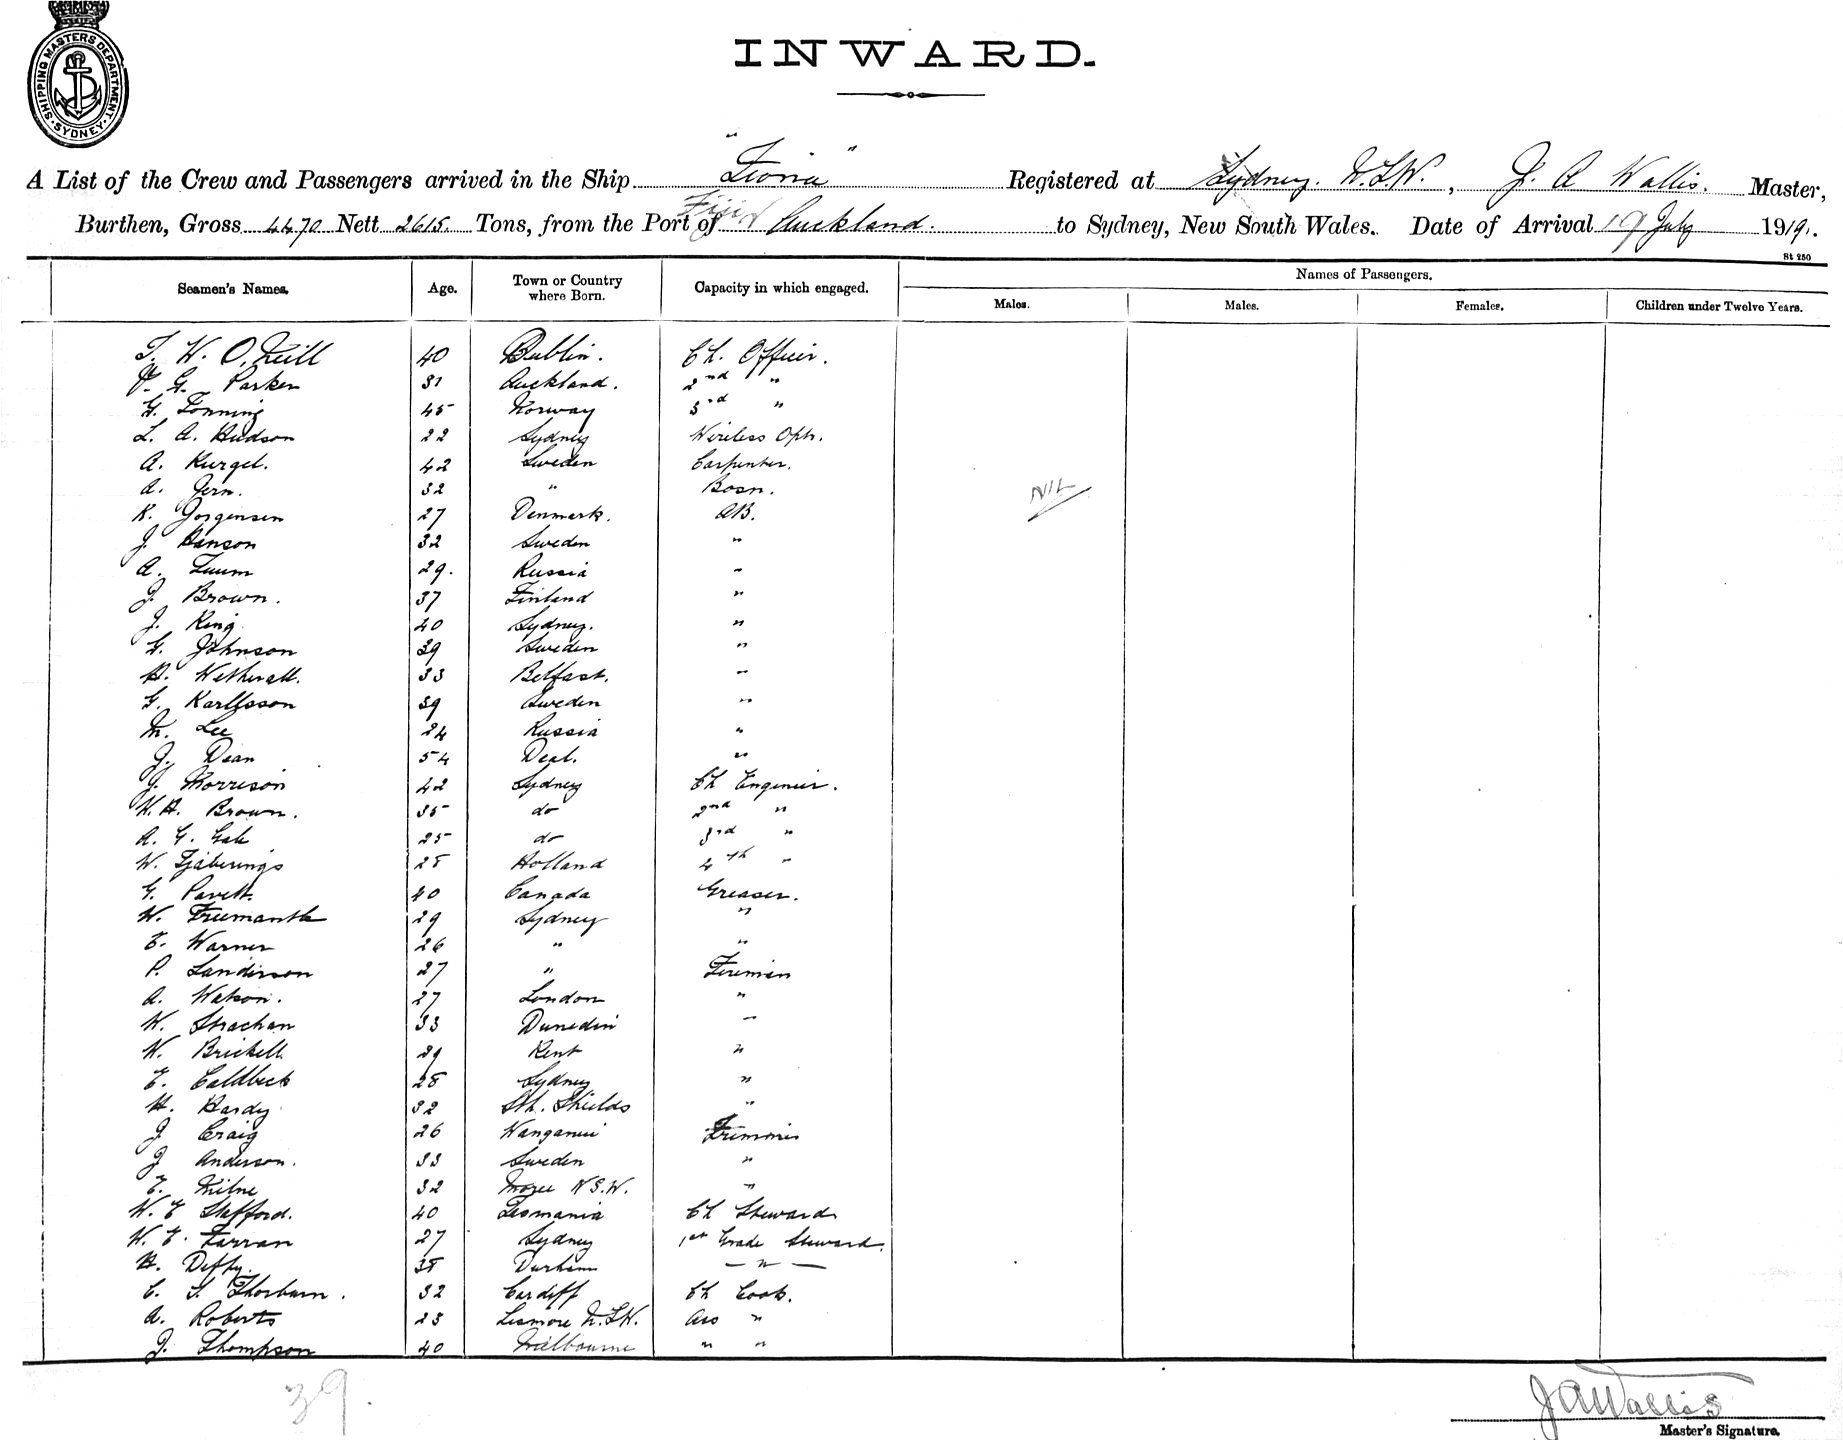 SHIPPING MASTERS DEPARTMENT
SYDNEY
INWARD.
A List of the Crew and Passengers arrived in the Ship "Fiona" Registered at Sydney. N.S.W., J. A Wallis. Master,
Burthen, Gross 4470 Nett 2615 Tons, from the Port of Fiji & Auckland. to Sydney, New South Wales. Date of Arrival 19 July 1919.
St 250
Seamen's Names. Age. Town or Country where Born. Capacity in which engaged. Names of Passengers.
Males. Males. Females. Children under Twelve Years.
T. W. O'Neill 40 Dublin. Ch. Officer.
G. Parker 31 Auckland. 2nd "
G. Fonning 45 Norway 3rd "
L. A. Hudson 22 Sydney Wireless Optr.
A. Kurgel. 42 Sweden Carpenter.
A. Jern. 32 " Bosn.
NIL
K. Jorgensen 27 Denmark. AB.
J. Hanson 32 Sweden "
A. Tuum 29. Russia "
J. Brown. 37 Finland "
J. King 40 Sydney. "
G. Johnson 39 Sweden "
H. Wetherall. 33 Belfast. "
G. Karlsson 39 Sweden "
M. Lee 24 Russia "
J. Dean 54 Deal. "
J. Morrison 42 Sydney Ch Engineer.
W. H. Brown. 35 do 2nd "
A. G. Gale 25 do 3rd "
W. Tjaberings 28 Holland 4th "
G. Pavett. 40 Canada Greaser.
W. Freemantle 29 Sydney "
E. Warner 26 " "
P. Sanderson 27 " Fireman
A. Watson. 27 London "
W. Strachan 33 Dunedin "
W. Brickell 39 Kent "
E. Caldbeck 28 Sydney "
H. Hardy 32 Sth. Shields "
J. Craig 26 Wanganui Trimmer
J Anderson. 33 Sweden "
E. Milne 32 Moree N.S.W. "
W. E Stafford. 40 Tasmania Ch Steward
W. E. Farran 27 Sydney 1st Grade Steward.
H. Deffy. 38 Durham — " —
C. S. Thorburn. 32 Cardiff Ch Cook.
A. Roberts 23 Lismore N.S.W. Ass "
J. Thompson 40 Melbourne " "
39.
J A Wallis
Master's Signature.